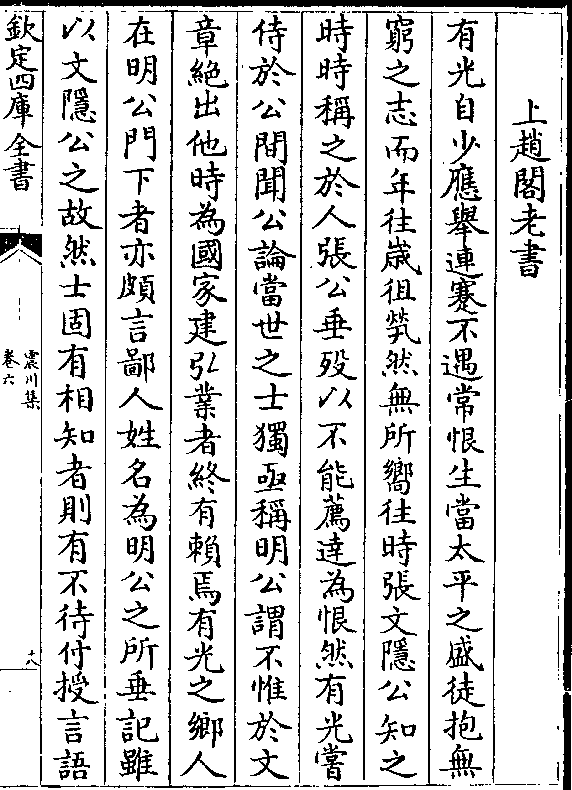 上趙閣老書
有光自少應舉連蹇不遇常恨生當太平之盛徒抱無
窮之志而年往歲徂煢然無所嚮往時張文隱公知之
時時稱之於人張公垂殁以不能薦達為恨然有光嘗
侍於公間聞公論當世之士獨亟稱明公謂不惟於文
章絶出他時為國家建弘業者終有賴焉有光之鄉人
在明公門下者亦頗言鄙人姓名為明公之所垂記雖
以文隱公之故然士固有相知者則有不待付授言語
欽定四庫全書
震川集
卷六
十八